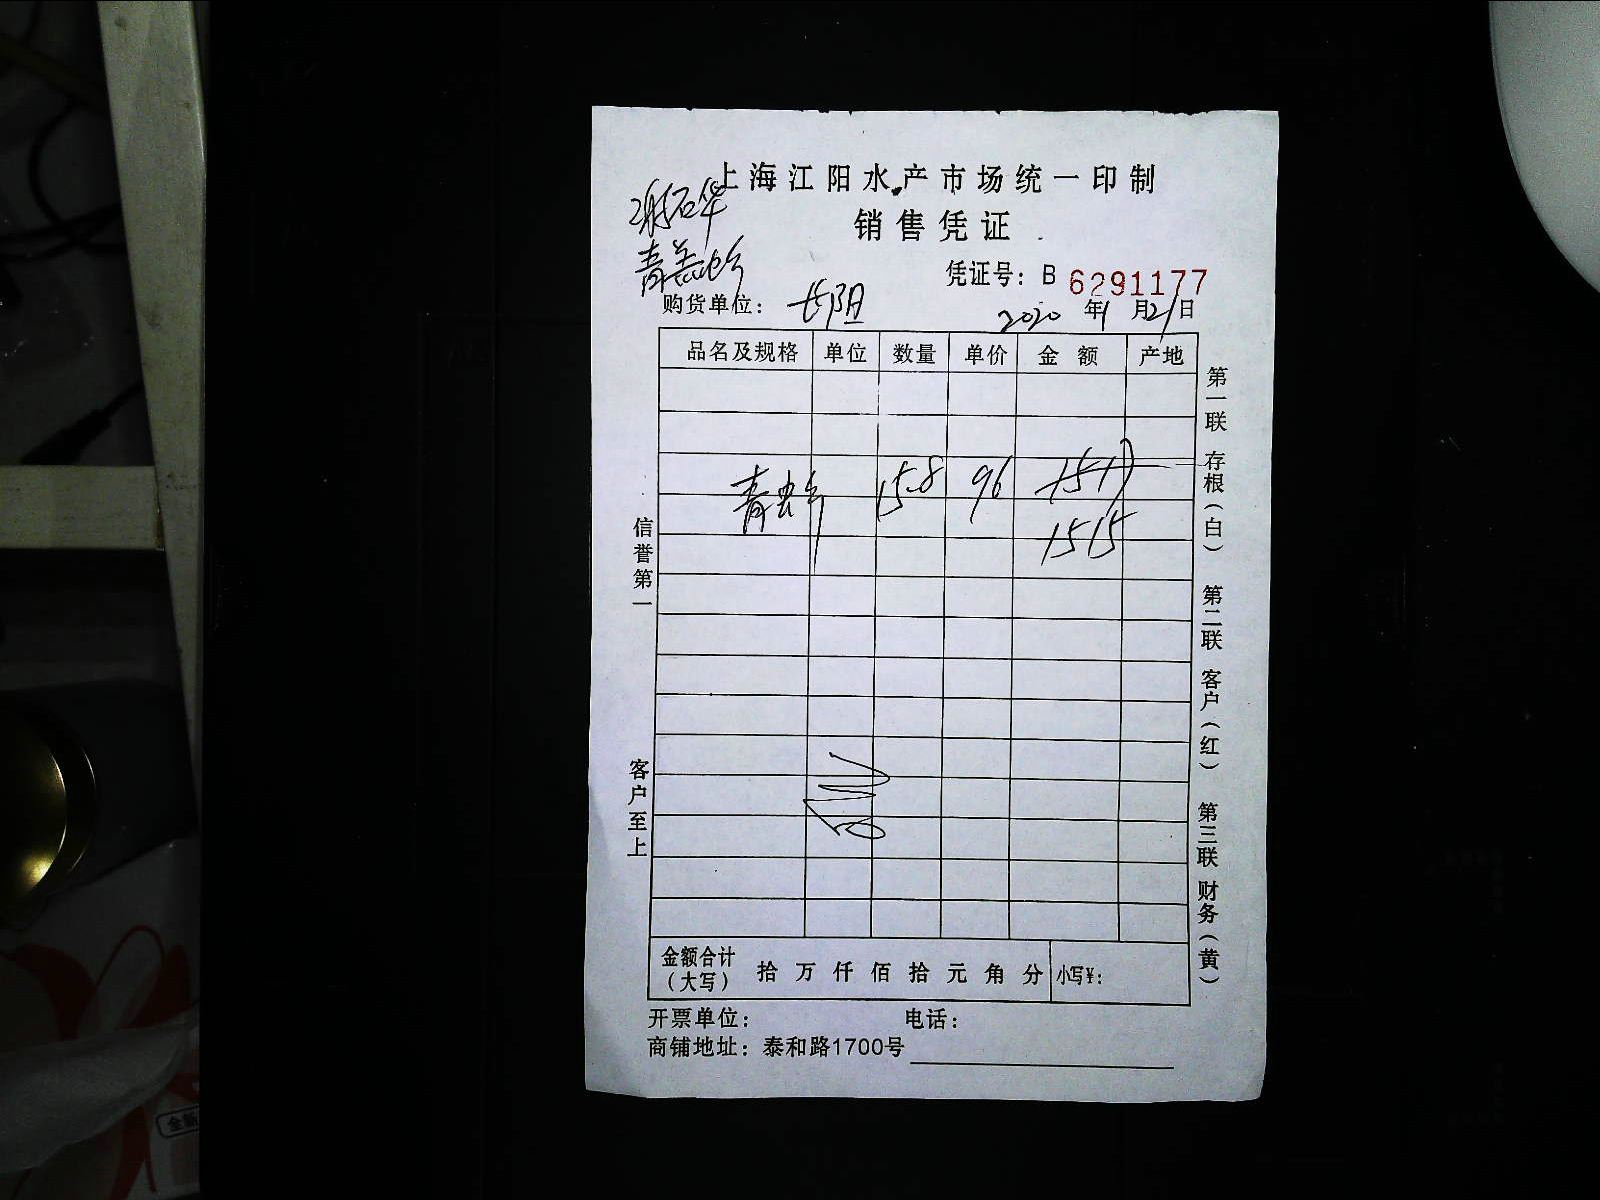 上海江阳水产市场统一印制
谢石华
销售凭证
青盖蚧
凭证号：B 6291177
购货单位：长阳
2020年1月21日
品名及规格 单位 数量 单价 金额 产地
青虫午 15.8 96 1517
1515
金额合计（大写） 拾 万 仟 佰 拾 元 角 分 小写¥：
开票单位： 电话：
商铺地址：泰和路1700号
信誉第一 客户至上
第一联 存根（白） 第二联 客户（红） 第三联 财务（黄）
全新